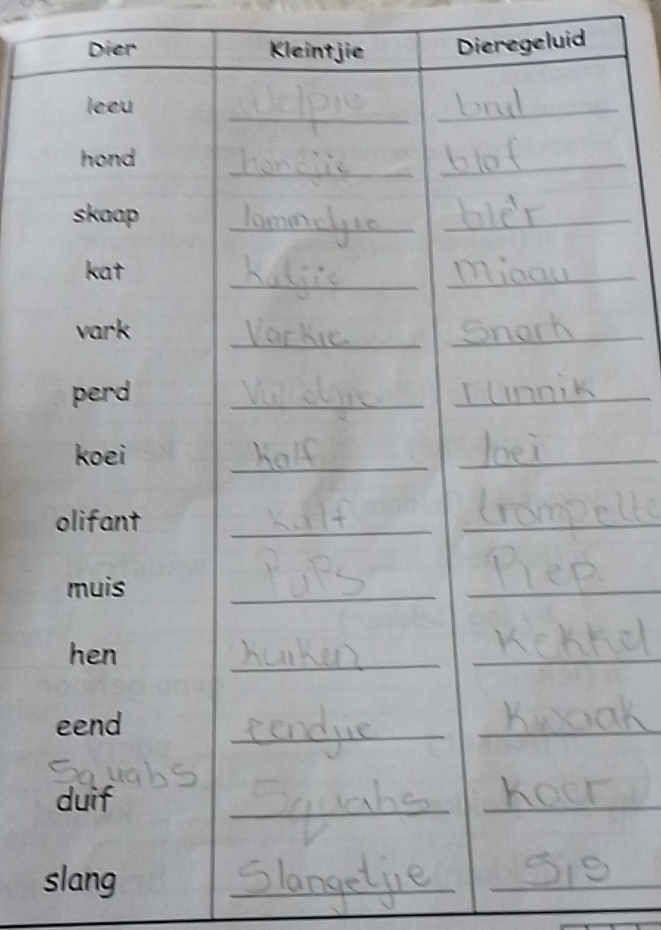 Dier Kleintjie Dieregeluid
leeu Welpie brul
hond hondjie blaf
skaap lammetjie blêr
kat katjie miaau
vark Varkie Snork
perd runnik
koei kalf loei
olifant kalf trompette
muis Pups Piep
hen kuiken kekkel
eend eendjie kwaak
Squabs
duif Squabs koer
slang Slangetjie Sis